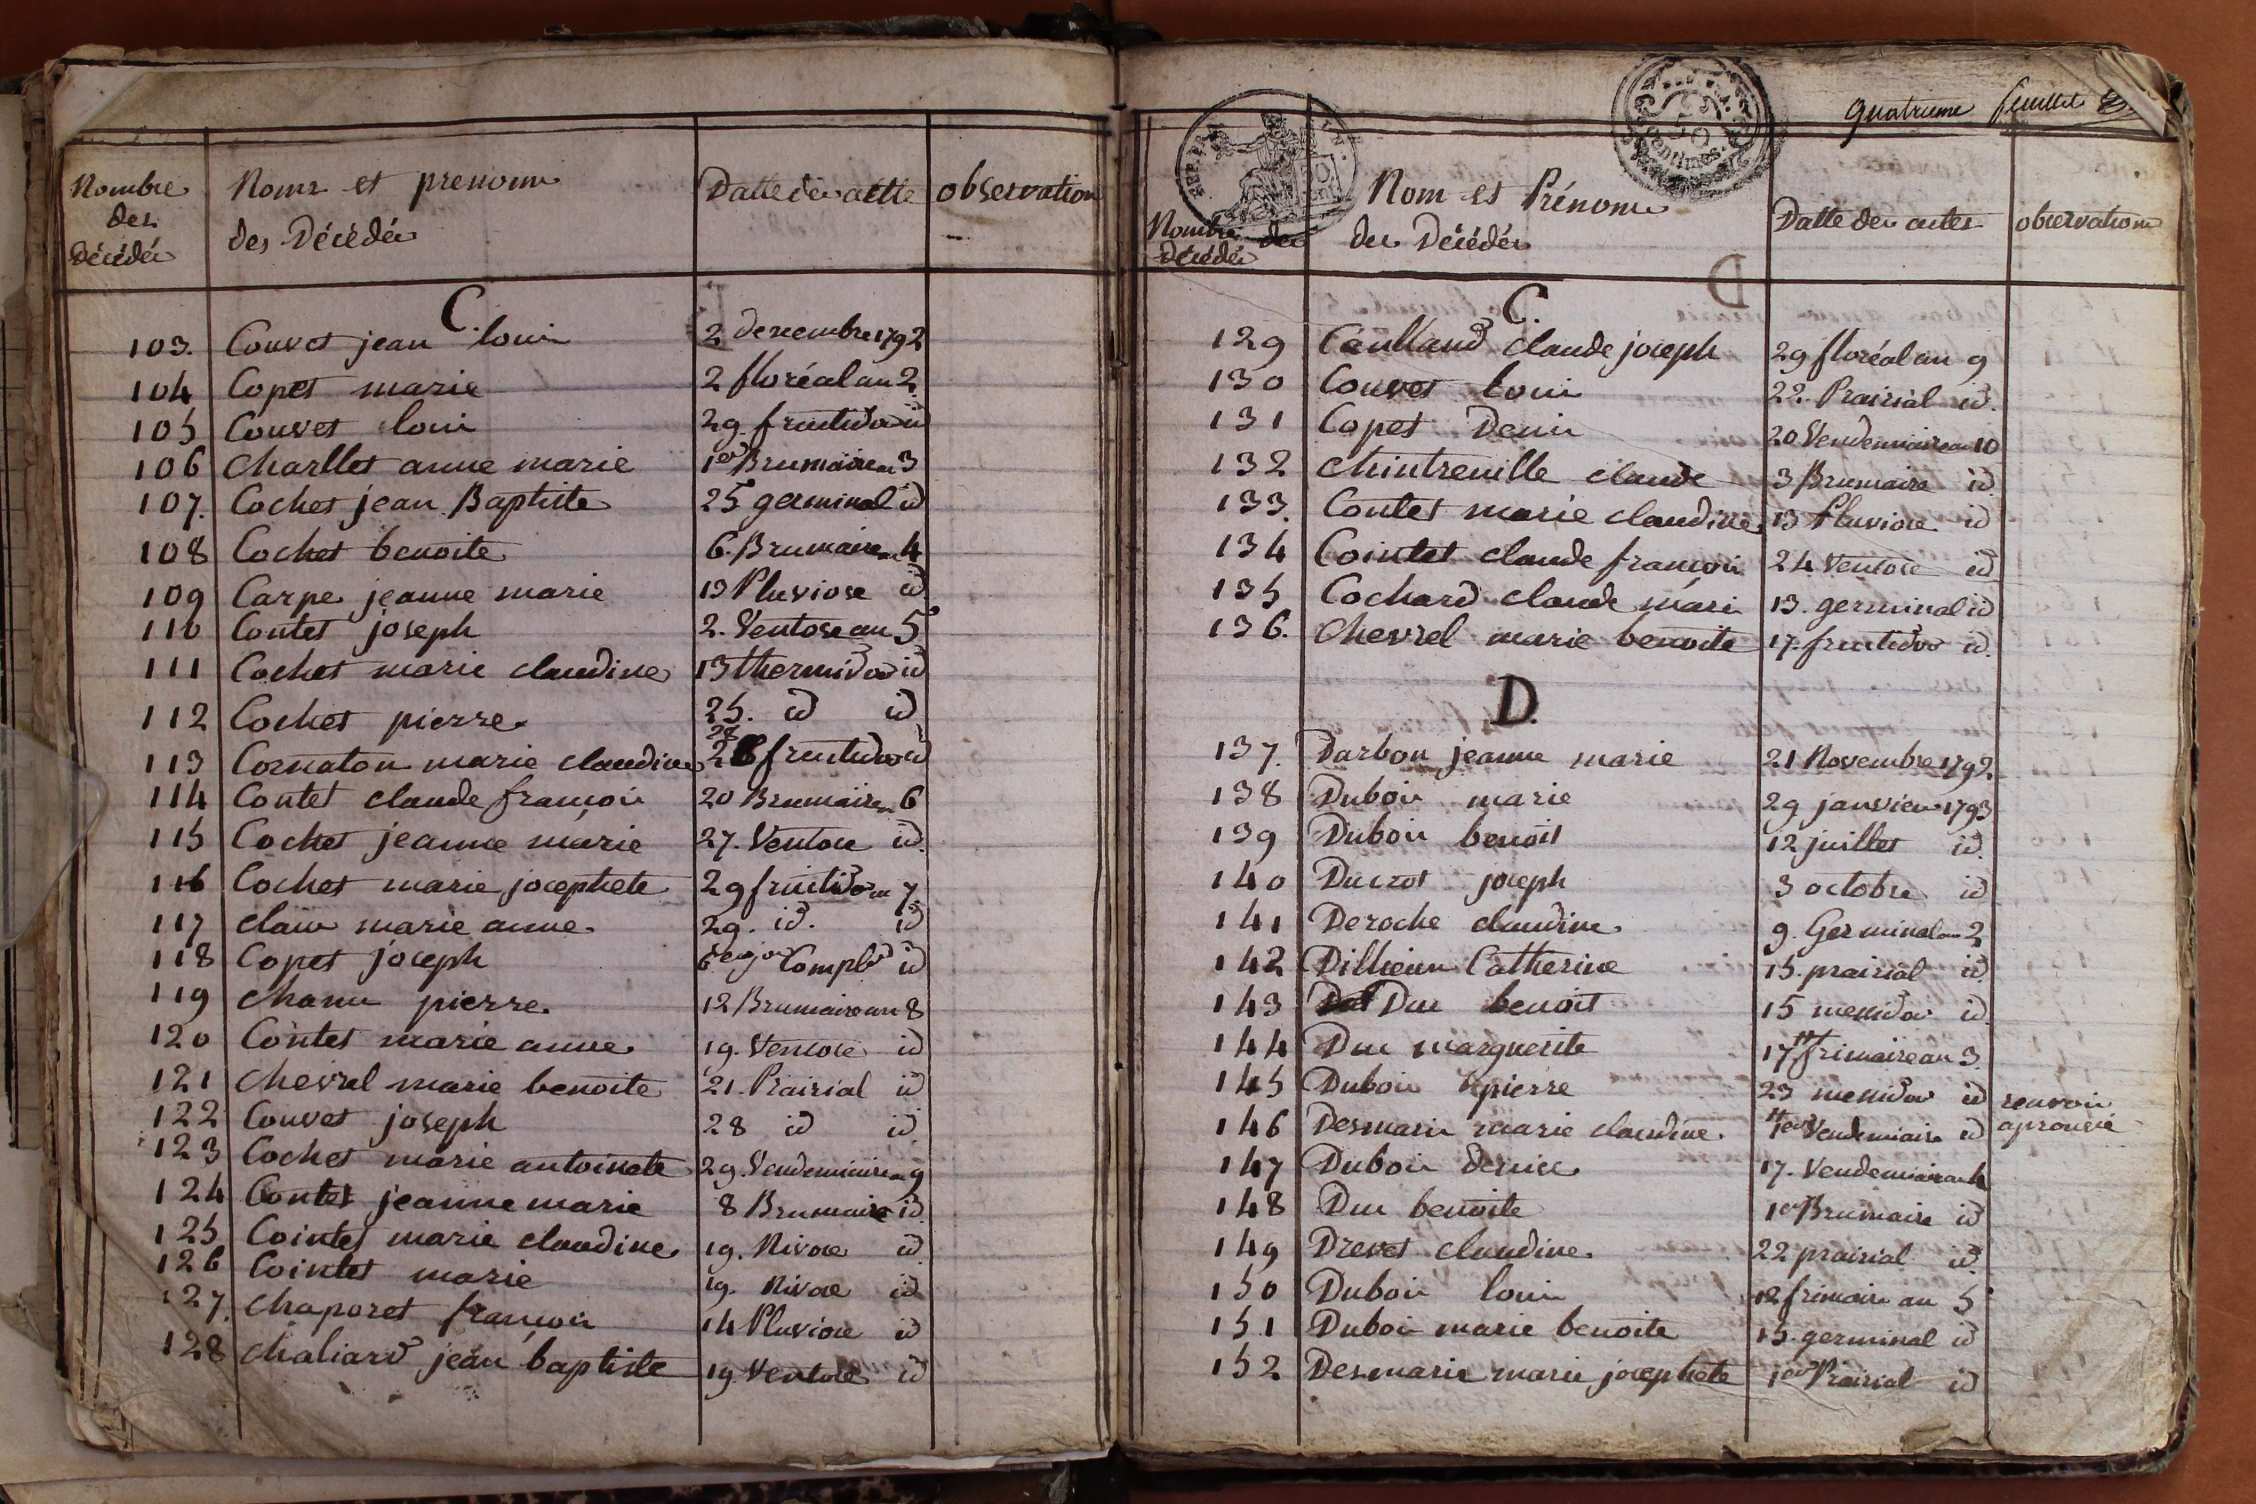 Nombre des Décédés
Noms et prenoms des Décédés
Datte des actte
observation
C.
103. Couvet jean louis 2 decembre 1792
104 Copet marie 2 floréal an 2
105 Couvet louis 29. fructidor id
106 Charllet anne marie 1er Brumaire an 3
107. Cochet jean Baptiste 25 germinal id
108 Cochet benoite 6. Brumaire an 4
109 Carpe jeanne marie 13 Pluviose id
110 Contet joseph 2. Ventose an 5
111 Cochet marie claudine 13 thermidor id
112 Cochet pierre. 25. id id
113 Cornaton marie claudine 28 fructidor id
114 Contet claude françois 20 Brumaire an 6
115 Cochet jeanne marie 27. Ventose id.
116 Cochet marie josephete 29 fructidor an 7
117 clair marie anne. 29. id. id
118 Copet joseph 6e jour Compl. id
119 chanu pierre. 12 Brumaire an 8
120 Contet marie anne 19. Ventose id
121 chevrel marie benoite 21. Prairial id
122 Couvet joseph 28 id id
123 Cochet marie antoinete 29. Vendemiaire an 9
124 Contet jeanne marie 8 Brumaire id
125 Cointet marie claudine 19. Nivose id
126 Cointet marie 19. Nivose id
127. chaporet françois 14 Pluviose id
128 chaliard jean baptiste 19 Ventose id
quatrieme feuillet
50 Centimes.
Nombre des Décédés
Nom et Prénoms des Décédés
Datte des actes
observations
C.
129 claude joseph 29 floréal an 9
130 Couvet louis 22. Prairial id.
131 Copet Denis 20 Vendemiaire an 10
132 chintreuille claude 3 Brumaire id
133. Contet marie claudine 13 Pluviose id
134 Cointet claude françois 24 Ventose id
135 Cochard claude mari 13. germinal id
136. chevrel marie benoite 17. fructidor id.
D.
137. Darbon jeanne marie 21 Novembre 1792.
138 Dubois marie 29 janvier 1793
139 Dubois benoit 12 juillet id.
140 Ducrot joseph 3 octobre id
141 Deroche claudine. 9. Germinal an 2
142 Catherine 15. prairial id
143 Duc benoit 15 messidor id.
144 Duc marguerite 17 frimaire an 3.
145 Dubois pierre 23 messidor id
146 Desmaris marie claudine. 1er Vendemiaire id renvoi aprouvé
147 Dubois denise 17. Vendemiaire an 4
148 Duc benoite 1er Brumaire id
149 Drevet claudine. 22 prairial id.
150 Dubois louis 12 frimaire an 5
151 Dubois marie benoite 15. germinal id
152 Desmaris marie josephete 1er Prairial id